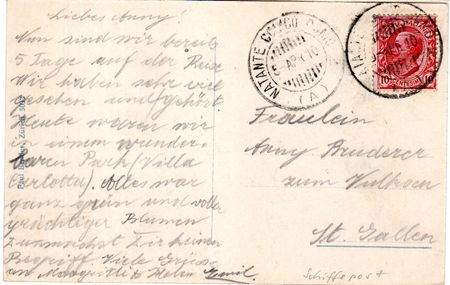 Liebes Anny!
Nun sind wir bereits
5 Tage auf der Reise
Wir haben sehr viel
gesehen und gehört.
Heute waren wir
in einem wunder-
baren Park (Villa
Carlotta). Alles war
ganz grün und voller
prächtiger Blumen
Du machst Dir keinen
Begriff. Viele Grüsse
an Margrit & Helen Emil.
NATANTE COMO
(A)
Fräulein
Anny Bruderer
zum Vulkan
St. Gallen
Schiffspost